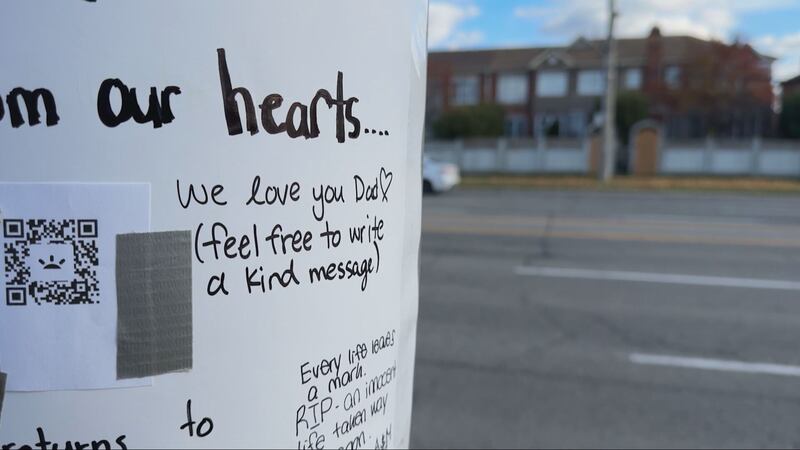 om our hearts....
We love you Dad♡
(feel free to write
a kind message)
Every life leaves
a mark.
RIP - an innocent
life taken way
returns to